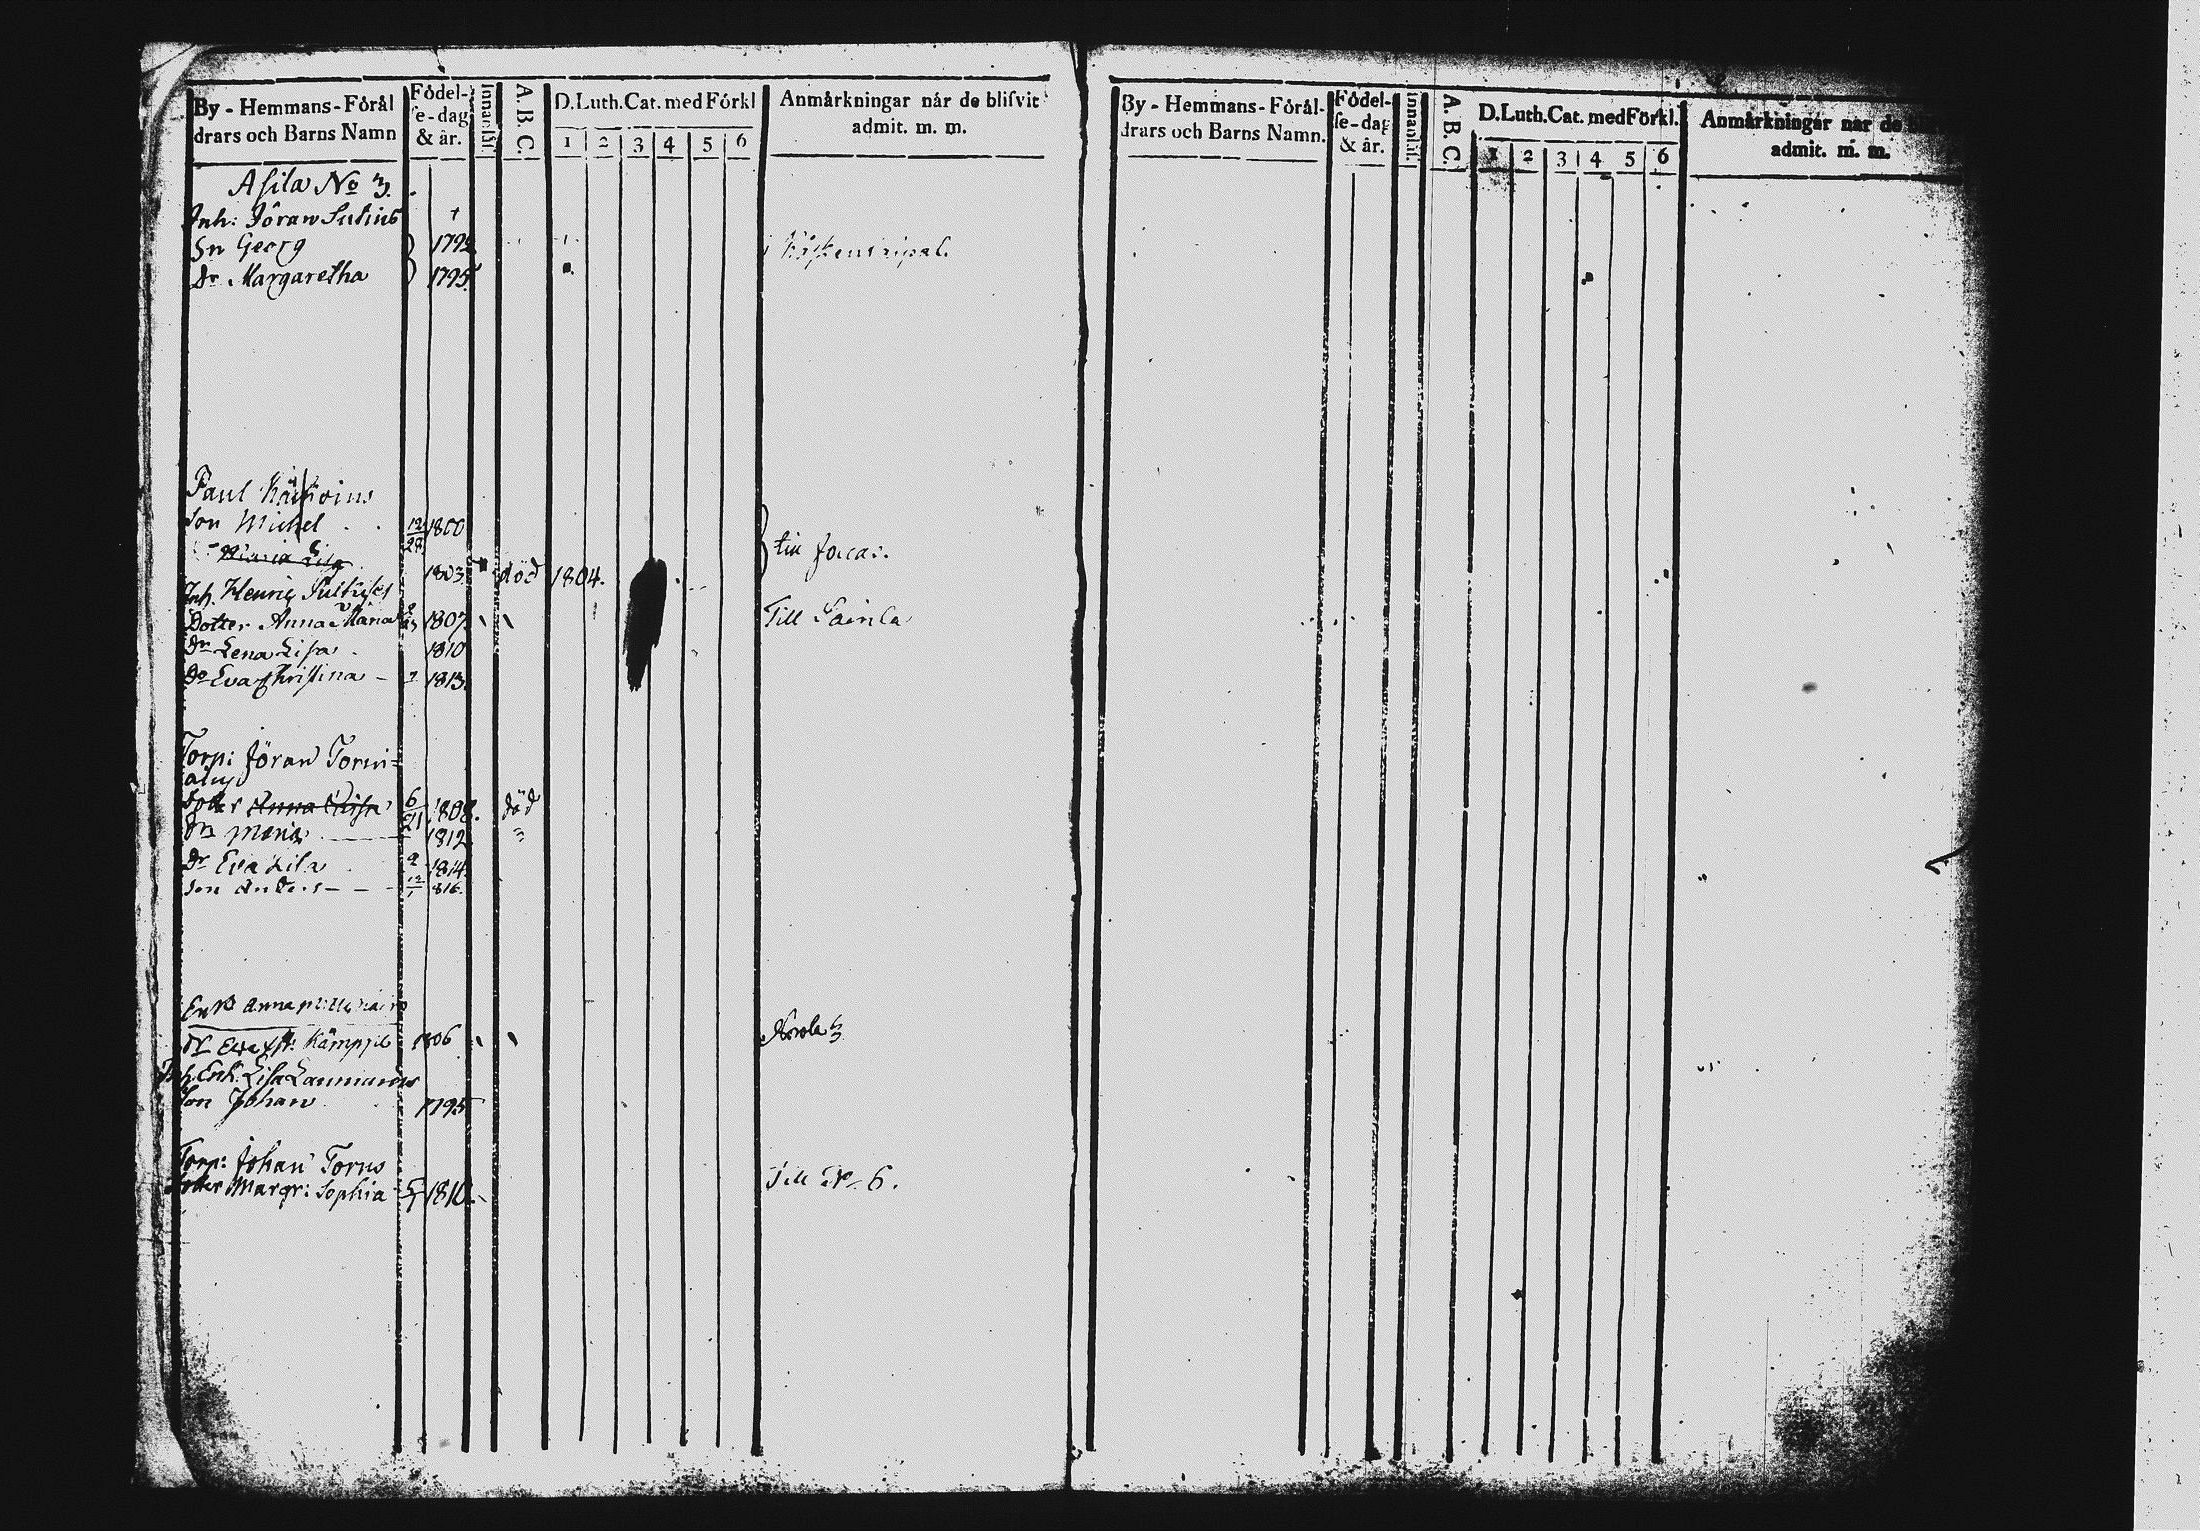 By - Hemmans - Förål
drars och Barns Namn
Födel-
se-dag
& år.
Innanläs.
A. B. C.
D. Luth. Cat. med Förkl
1 2 3 4 5 6
Anmårkningar når de blifvit
admit. m. m.
Asila No 3.
Inh: Jöran Sutius
Sn Georg 1792
Dr Margaretha 1795
Paul
Son Michel 12/28 1800
Maria Lisa 1803 död 1804.
till
Inh. Henric
Dotter Anna Maria 1807 Till
Dr Lena Lisa 1810
Do Eva Christina - 1813
Torp: Jöran Torni=
Dotter Anna Lisa 6/21 1808. död
Dr Maria 1812
Dr Eva Lisa 1814
Son Anders - - 12/1 1816.
Enk Anna
Dr Eva Chr: Kämppi 1806
Inh. Enk. Lisa Laumanus
Son Johan 1795
Torp: Johan Tornus
Dotter Margr: Sophia 1810 Till No 6.
By - Hemmans - Förål-
drars och Barns Namn.
Födel-
se-dag
& år.
Innanläs.
A. B. C.
D. Luth. Cat. med Förkl.
1 2 3 4 5 6
Anmårkningar når de
admit. m. m.